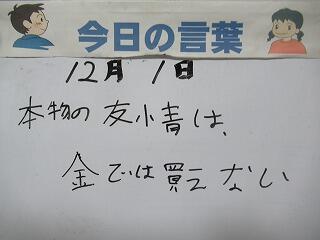 今日の言葉
12月 1日
本物の 友情は、
金では買えない